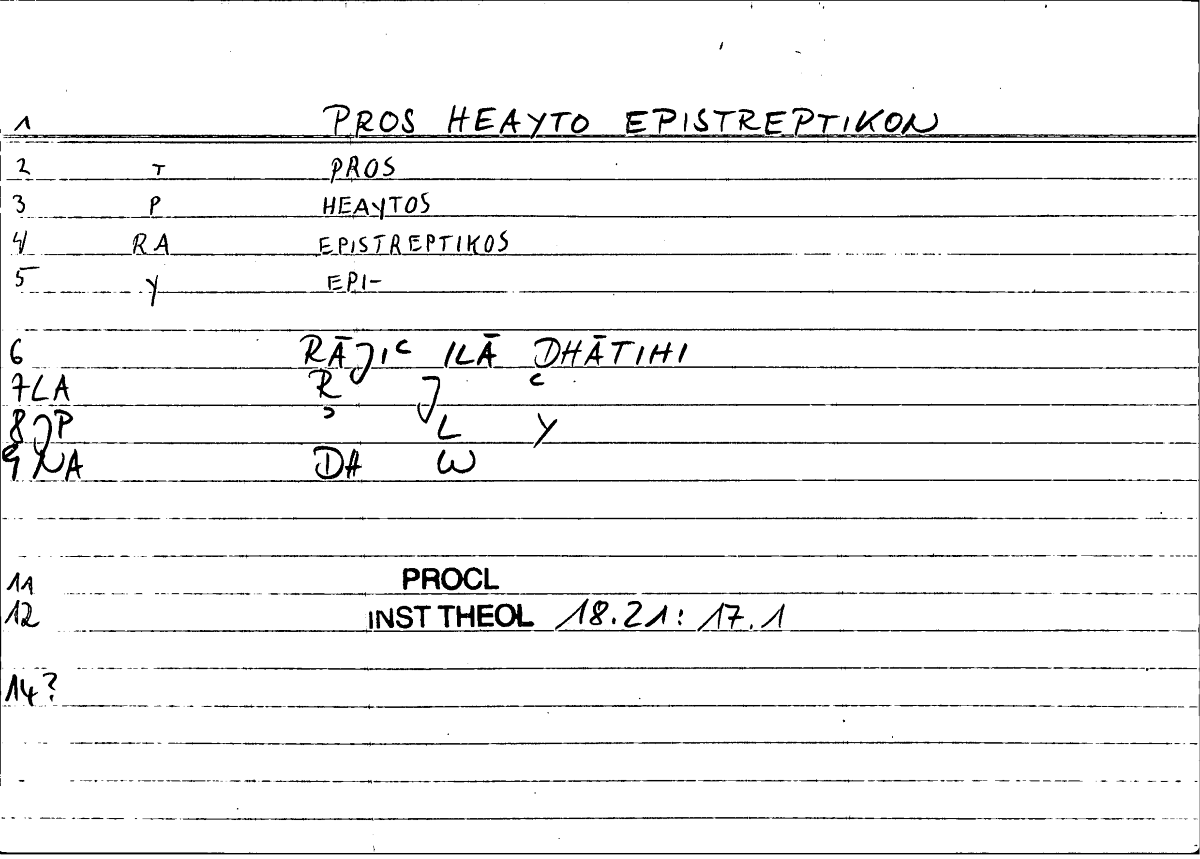 1 PROS HEAYTO EPISTREPTIKON
2 T PROS
3 P HEAYTOS
4 RA EPISTREPTIKOS
5 Y EPI-
6 RĀJIC ILĀ DHĀTIHI
7 LA R J C
8 JP ɔ L Y
9 NA DH W
11 PROCL
12 INST THEOL 18.21: 17.1
14?